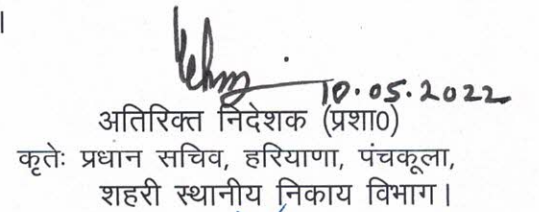 10.05.2022
अतिरिक्त निदेशक (प्रशा0)
कृतेः प्रधान सचिव, हरियाणा, पंचकूला,
शहरी स्थानीय निकाय विभाग।